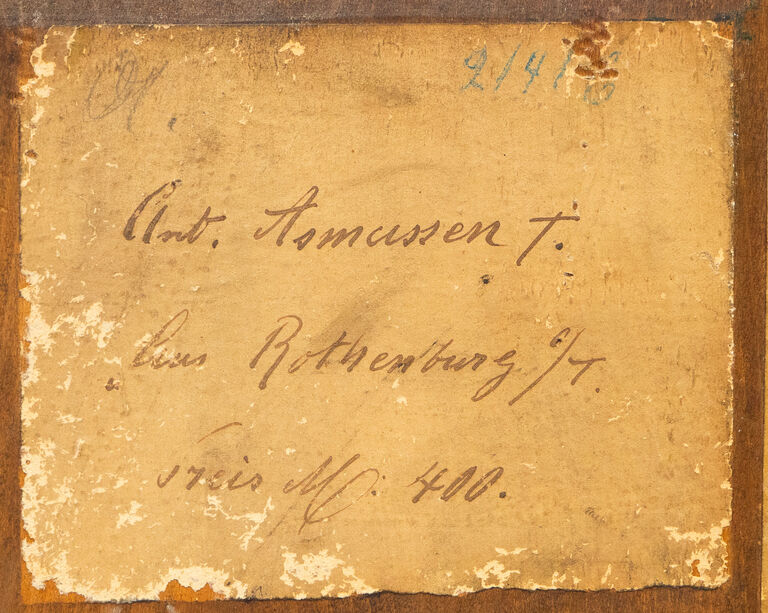 2/4/
Ant. Asmussen †.
aus Rothenburg o/T.
Preis M. 400.